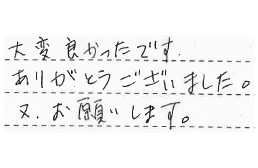 大変良かったです.
ありがとうございました。
又、お願いします。